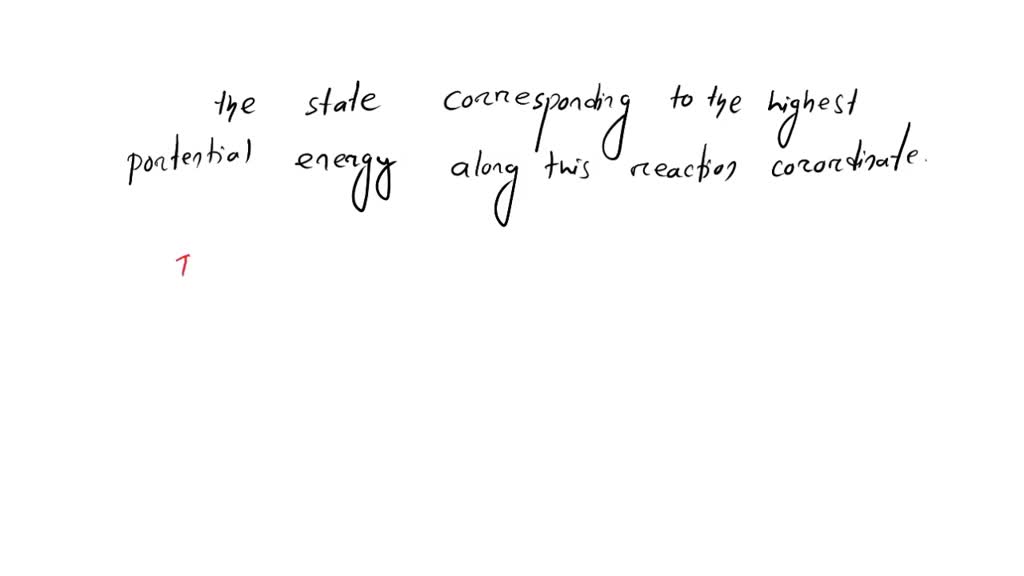 the state corresponding to the highest
portential energy along this reaction corordinate.
T